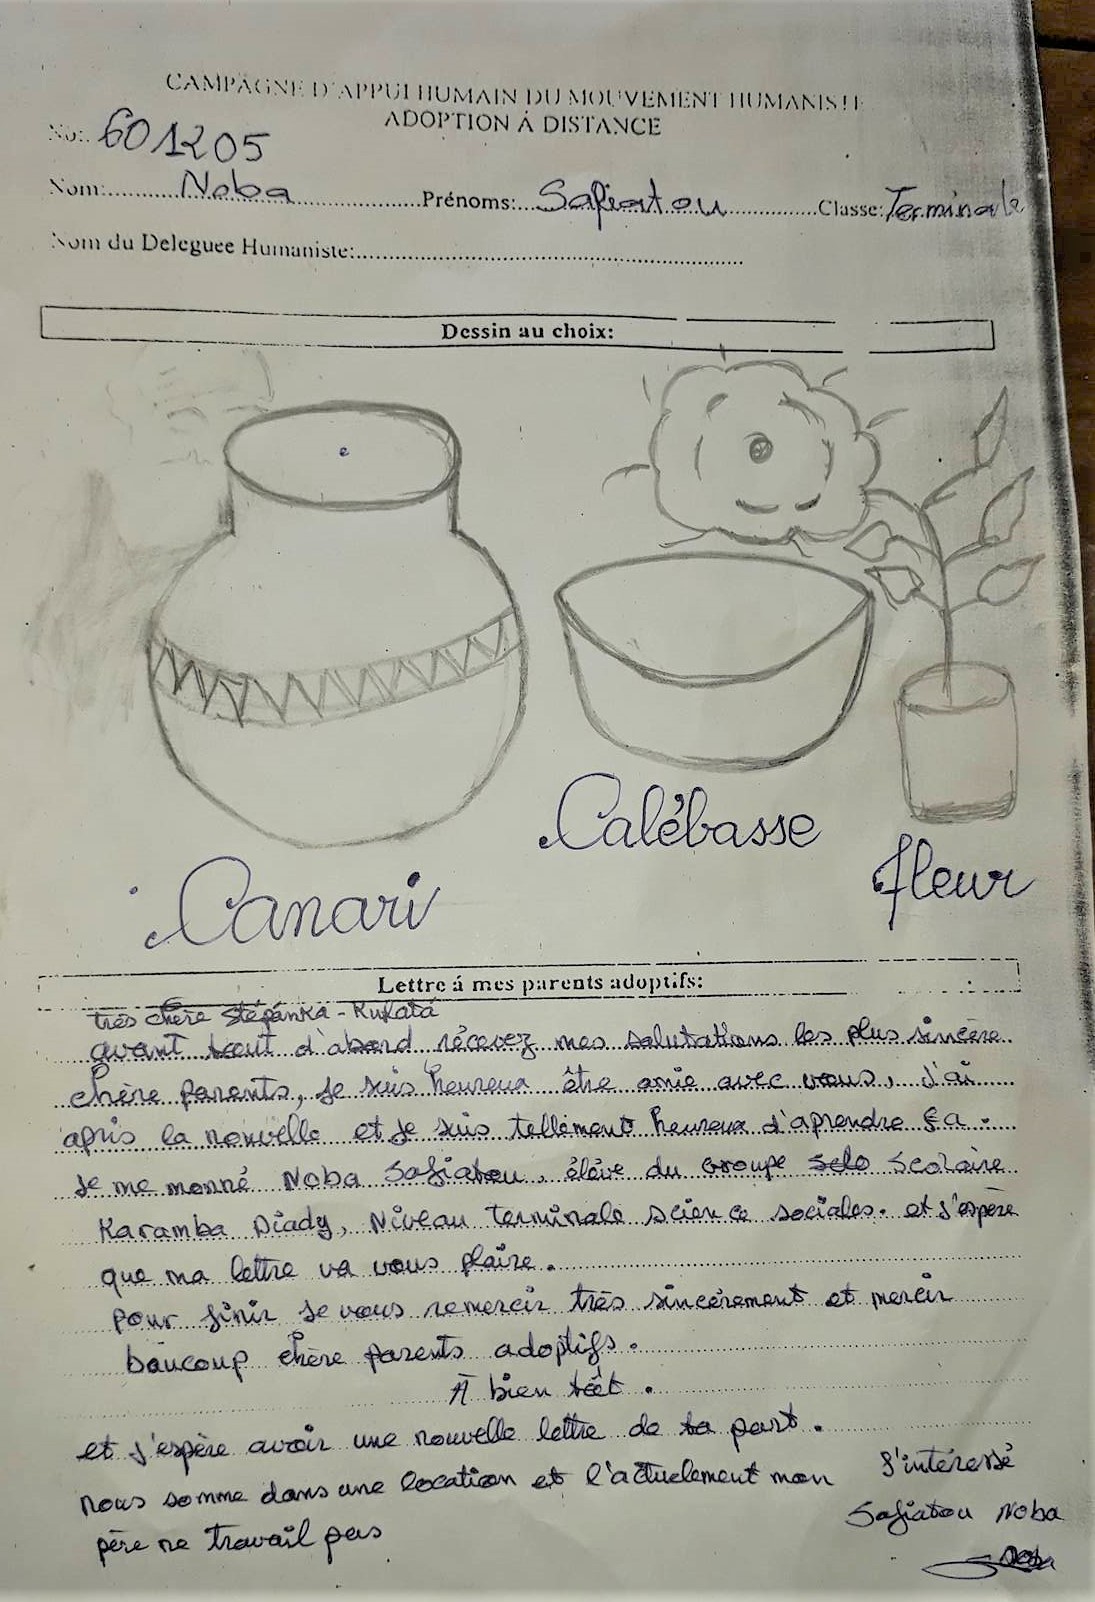 CAMPAGNE D'APPUI HUMAIN DU MOUVEMENT HUMANISTE
ADOPTION Á DISTANCE
No: 601205
Nom: Noba Prénoms: Safiatou Classe: Terminale
Nom du Deleguee Humaniste:
Dessin au choix:
Calébasse
fleur
Canari
Lettre á mes parents adoptifs:
très chère Stépánka - Kukatá
avant tout d'abord récevez mes salutations les plus sincère
chère parents, je suis heureux être amie avec vous, j'ai
apris la nouvelle et je suis tellement heureux d'aprendre ça.
Je me monné Noba Safiatou, élève du Groupe Scolaire
Karamba Diady, Niveau terminale science sociales. et j'espère
que ma lettre va vous plaire.
pour finir je vous remercir très sincèrement et mercir
baucoup chère parents adoptifs.
À bien tôt.
et j'espère avoir une nouvelle lettre de ta part.
nous somme dans une location et l'actuelement mon
père ne travail pas
l'intéressé
Safiatou Noba